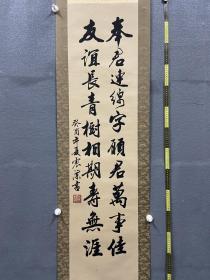 奉君連綿字願君萬事佳
友誼長青樹相期壽無涯
癸酉年夏震深書